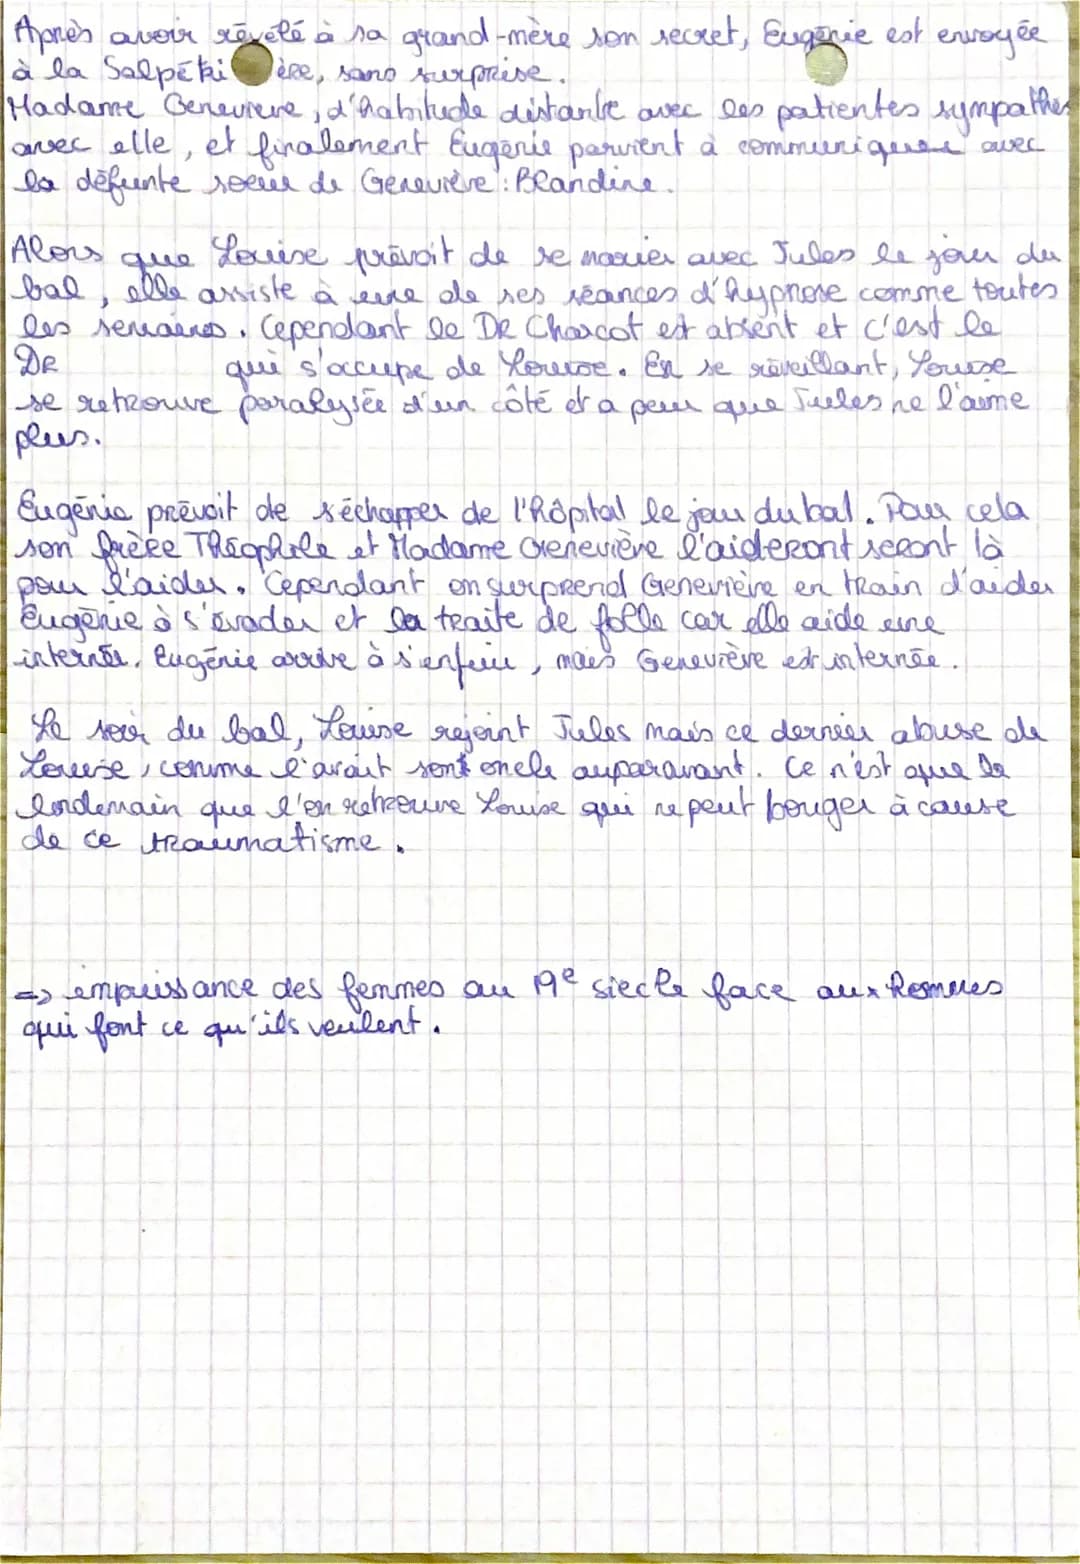 Après avoir révélé à sa grand-mère son secret, Eugénie est envoyée
à la Salpêtrière, sans surprise.
Madame Genevieve, d'habitude distante avec les patientes sympathise
avec elle, et finalement Eugénie parvient à communiquer avec
la défunte soeur de Geneviève : Blandine.
Alors que Louise prévoit de se marier avec Jules le jour du
bal, elle assiste à une de ses séances d'hypnose comme toutes
les semaines. Cependant le DR Charcot est absent et c'est le
DR qui s'occupe de Louise. En se réveillant, Louise
se retrouve paralysée d'un côté et a peur que Jules ne l'aime
plus.
Eugénie prévoit de s'échapper de l'hôpital le jour du bal. Pour cela
son frère Théophile et Madame Geneviève l'aideront seront là
pour l'aider. Cependant on surprend Geneviève en train d'aider
Eugénie à s'évader et la traite de folle car elle aide une
internée. Eugénie arrive à s'enfuir, mais Geneviève est internée.
Le soir du bal, Louise rejoint Jules mais ce dernier abuse de
Louise, comme l'avait sont oncle auparavant. Ce n'est que le
lendemain que l'on retrouve Louise qui ne peut bouger à cause
de ce traumatisme.
=> impuissance des femmes au 19e siecle face aux hommes
qui font ce qu'ils veulent.